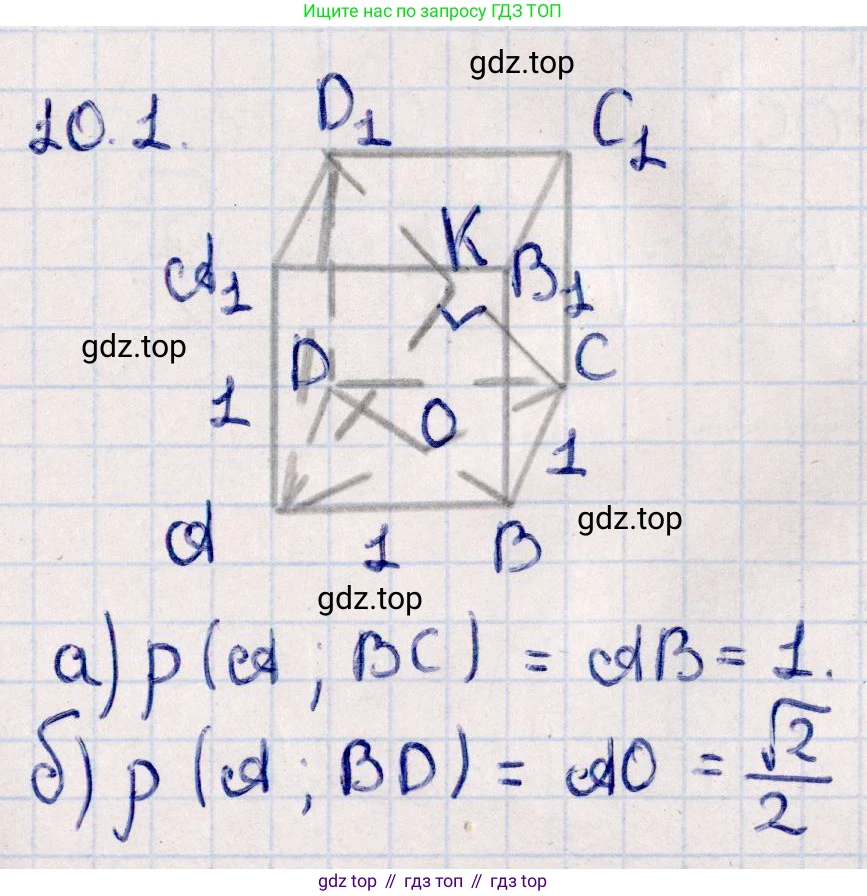 Ищите нас по запросу ГДЗ ТОП
gdz.top
10.1.
D1
C1
K
A1
B1
gdz.top
D
C
1
O
1
gdz.top
A
1
B
gdz.top
а) ρ(A; BC) = AB = 1.
б) ρ(A; BD) = AO = √2/2
gdz.top // гдз топ // gdz.top